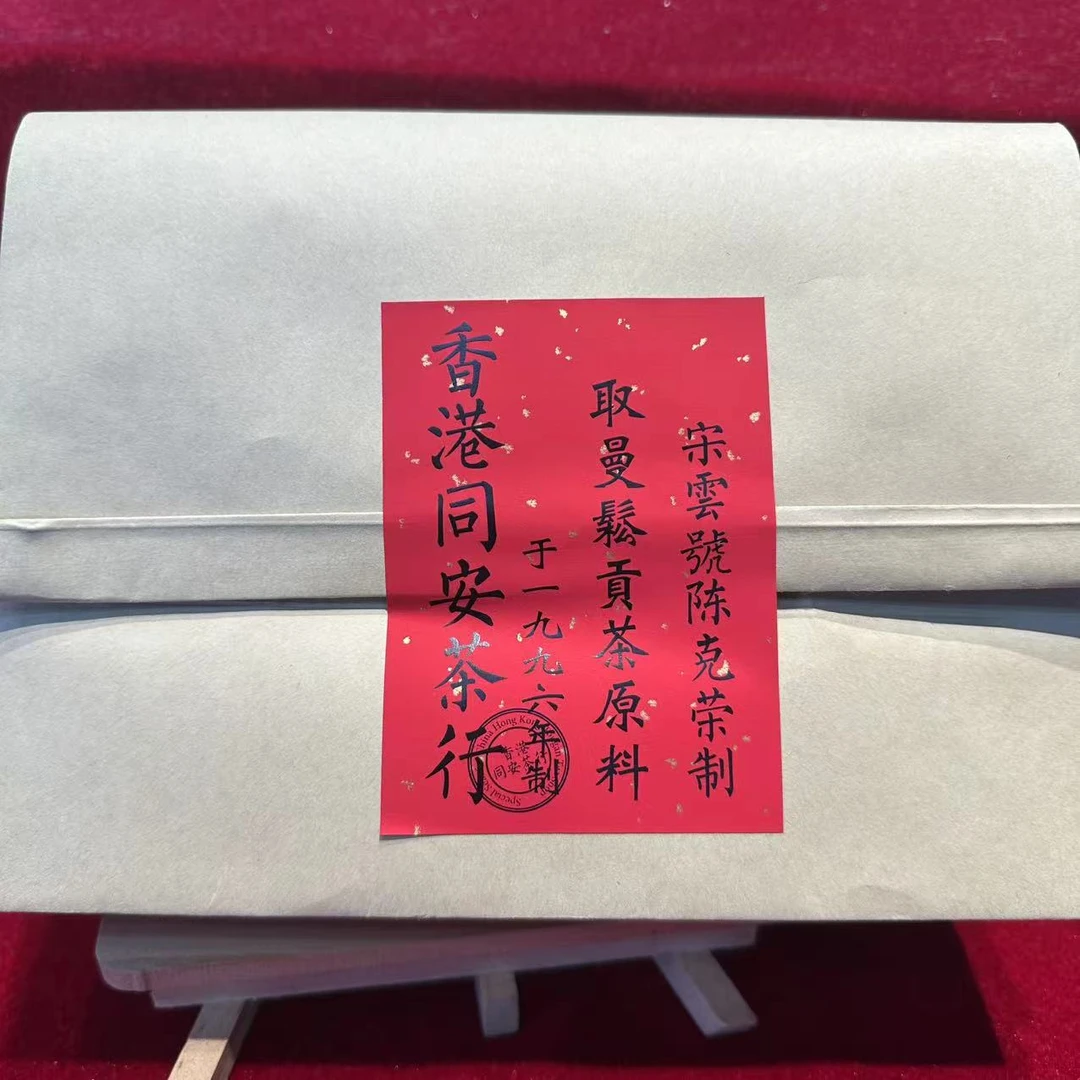 宋雲號陈克荣制
取曼鬆貢茶原料
于一九九六年制
香港同安茶行
China Hong Kong
Special
香港
同安茶行